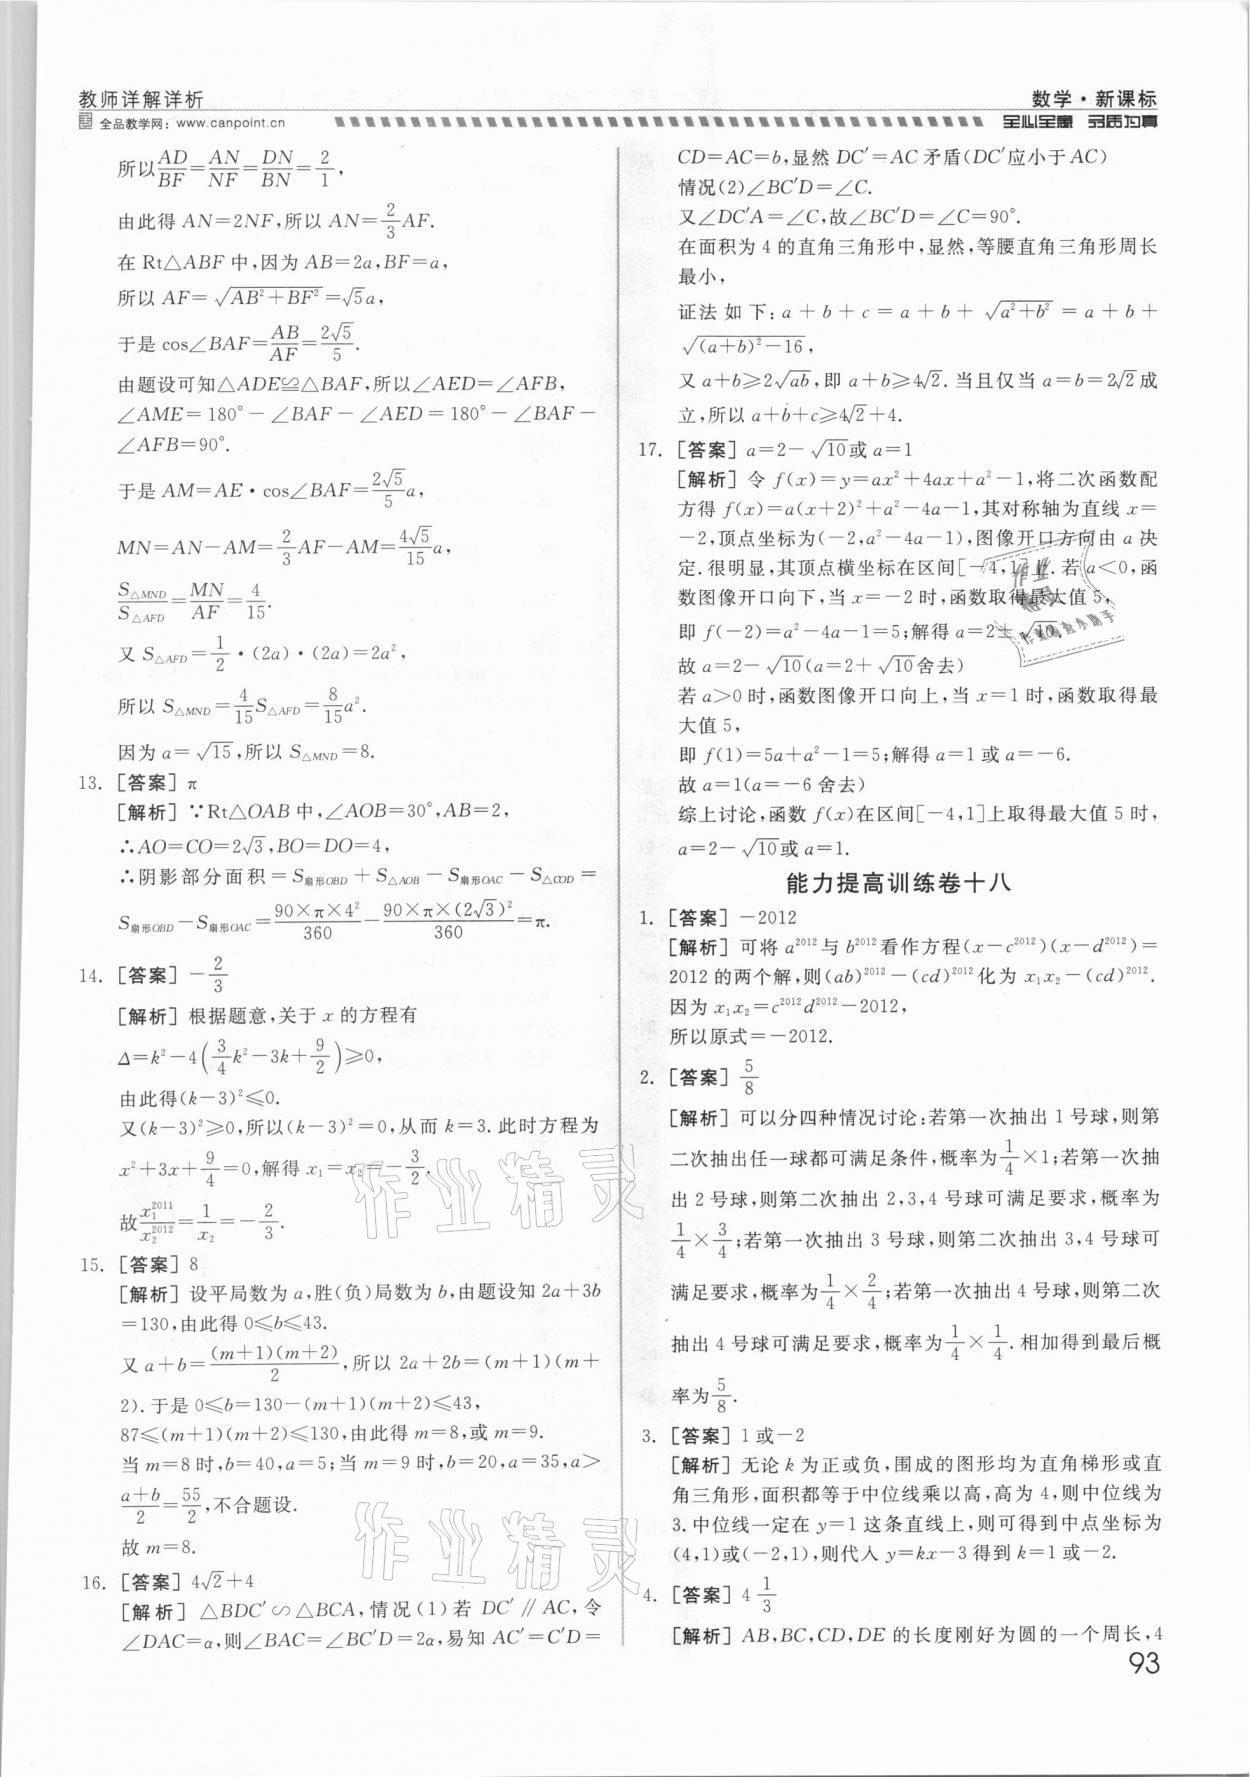 教师详解详析
全品教学网：www.canpoint.cn
数学·新课标
全心全意 品质为真
所以AD/BF=AN/NF=DN/BN=2/1，
由此得 AN=2NF，所以 AN=2/3AF.
在 Rt△ABF 中，因为 AB=2a，BF=a，
所以 AF=√(AB²+BF²)=√5a，
于是 cos∠BAF=AB/AF=2√5/5.
由题设可知△ADE≌△BAF，所以∠AED=∠AFB，
∠AME=180°-∠BAF-∠AED=180°-∠BAF-
∠AFB=90°.
于是 AM=AE·cos∠BAF=2√5/5a，
MN=AN-AM=2/3AF-AM=4√5/15a，
S△MND/S△AFD=MN/AF=4/15.
又 S△AFD=1/2·(2a)·(2a)=2a²，
所以 S△MND=4/15S△AFD=8/15a².
因为 a=√15，所以 S△MND=8.
13. [答案] π
[解析] ∵Rt△OAB 中，∠AOB=30°，AB=2，
∴AO=CO=2√3，BO=DO=4，
∴阴影部分面积=S扇形OBD+S△AOB-S扇形OAC-S△COD=
S扇形OBD-S扇形OAC=90×π×4²/360-90×π×(2√3)²/360=π.
14. [答案] -2/3
[解析] 根据题意，关于 x 的方程有
Δ=k²-4(3/4k²-3k+9/2)≥0，
由此得(k-3)²≤0.
又(k-3)²≥0，所以(k-3)²=0，从而 k=3. 此时方程为
x²+3x+9/4=0，解得 x₁=x₂=-3/2.
故x₁²⁰¹¹/x₂²⁰¹²=1/x₂=-2/3.
15. [答案] 8
[解析] 设平局数为 a，胜(负)局数为 b，由题设知 2a+3b
=130，由此得 0≤b≤43.
又 a+b=(m+1)(m+2)/2，所以 2a+2b=(m+1)(m+
2). 于是 0≤b=130-(m+1)(m+2)≤43，
87≤(m+1)(m+2)≤130，由此得 m=8，或 m=9.
当 m=8 时，b=40，a=5；当 m=9 时，b=20，a=35，a>
(a+b)/2=55/2，不合题设.
故 m=8.
16. [答案] 4√2+4
[解析] △BDC′∽△BCA，情况(1)若 DC′∥AC，令
∠DAC=α，则∠BAC=∠BC′D=2α，易知 AC′=C′D=
CD=AC=b，显然 DC′=AC 矛盾(DC′应小于 AC)
情况(2)∠BC′D=∠C.
又∠DC′A=∠C，故∠BC′D=∠C=90°.
在面积为 4 的直角三角形中，显然，等腰直角三角形周长
最小，
证法如下：a+b+c=a+b+√(a²+b²)=a+b+
√((a+b)²-16)，
又 a+b≥2√ab，即 a+b≥4√2. 当且仅当 a=b=2√2成
立，所以 a+b+c≥4√2+4.
17. [答案] a=2-√10或 a=1
[解析] 令 f(x)=y=ax²+4ax+a²-1，将二次函数配
方得 f(x)=a(x+2)²+a²-4a-1，其对称轴为直线 x=
-2，顶点坐标为(-2，a²-4a-1)，图像开口方向由 a 决
定. 很明显，其顶点横坐标在区间[-4，1]上. 若 a<0，函
数图像开口向下，当 x=-2 时，函数取得最大值 5，
即 f(-2)=a²-4a-1=5；解得 a=2±√10，
故 a=2-√10(a=2+√10舍去)
若 a>0 时，函数图像开口向上，当 x=1 时，函数取得最
大值 5，
即 f(1)=5a+a²-1=5；解得 a=1 或 a=-6.
故 a=1(a=-6 舍去)
综上讨论，函数 f(x)在区间[-4，1]上取得最大值 5 时，
a=2-√10或 a=1.
能力提高训练卷十八
1. [答案] -2012
[解析] 可将 a²⁰¹²与 b²⁰¹²看作方程(x-c²⁰¹²)(x-d²⁰¹²)=
2012 的两个解，则(ab)²⁰¹²-(cd)²⁰¹²化为 x₁x₂-(cd)²⁰¹².
因为 x₁x₂=c²⁰¹²d²⁰¹²-2012，
所以原式=-2012.
2. [答案] 5/8
[解析] 可以分四种情况讨论：若第一次抽出 1 号球，则第
二次抽出任一球都可满足条件，概率为1/4×1；若第一次抽
出 2 号球，则第二次抽出 2，3，4 号球可满足要求，概率为
1/4×3/4；若第一次抽出 3 号球，则第二次抽出 3，4 号球可
满足要求，概率为1/4×2/4；若第一次抽出 4 号球，则第二次
抽出 4 号球可满足要求，概率为1/4×1/4. 相加得到最后概
率为5/8.
3. [答案] 1 或-2
[解析] 无论 k 为正或负，围成的图形均为直角梯形或直
角三角形，面积都等于中位线乘以高，高为 4，则中位线为
3. 中位线一定在 y=1 这条直线上，则可得到中点坐标为
(4，1)或(-2，1)，则代入 y=kx-3 得到 k=1 或-2.
4. [答案] 4 1/3
[解析] AB，BC，CD，DE 的长度刚好为圆的一个周长，4
93
作业精灵
作业精灵